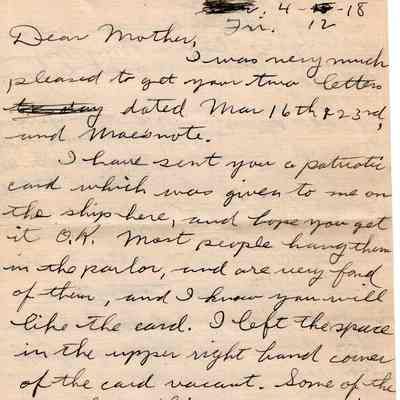 4-12-18
Fri.
Dear Mother,
I was very much
pleased to get your two letters
to-day dated Mar 16th & 23rd,
and Mae's note.
I have sent you a patriotic
card which was given to me on
the ship here, and hope you get
it O.K. Most people hang them
in the parlor, and are very fond
of them, and I know you will
like the card. I left the space
in the upper right hand corner
of the card vacant. Some of the